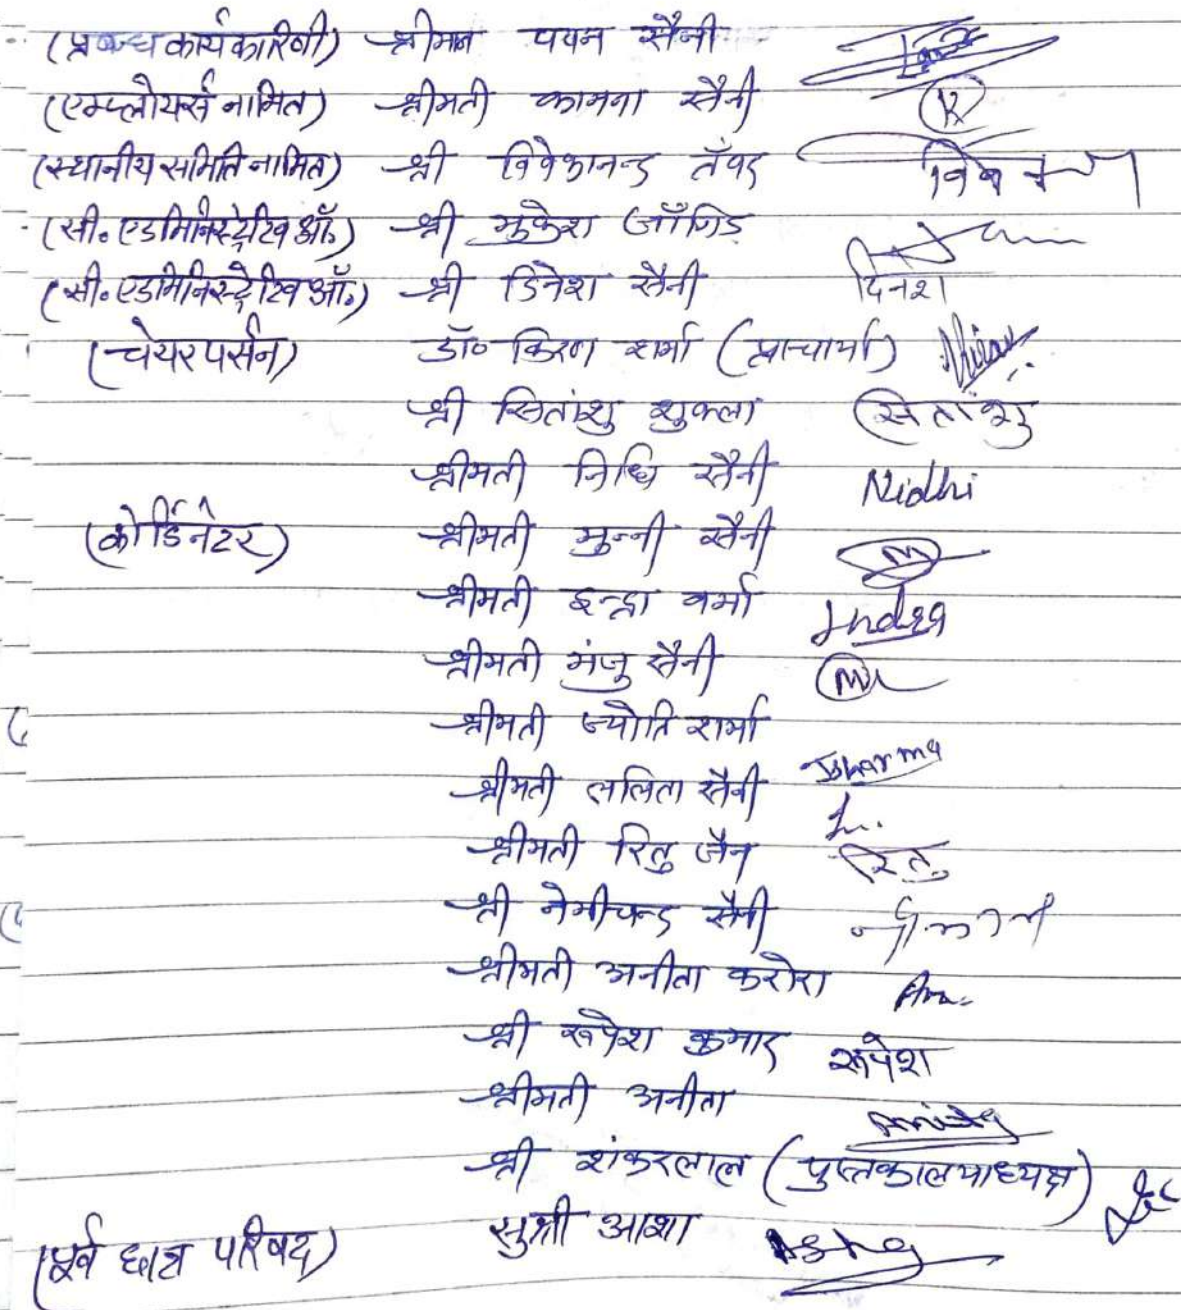 (प्रबन्ध कार्यकारिणी) श्रीमान पवन सैनी
(एम्प्लोयर्स नामित) श्रीमती कामना सैनी
(स्थानीय समिति नामित) श्री विवेकानन्द तँवर विवेकानन्द
(सी॰ एडमिनिस्ट्रेटिव ऑ॰) श्री मुकेश जाँगिड
(सी॰ एडमिनिस्ट्रेटिव ऑ॰) श्री दिनेश सैनी दिनेश
(चेयरपर्सन) डॉ॰ किरण शर्मा (प्राचार्या) Kiran
श्री सितांशु शुक्ला सितांशु
श्रीमती निधि सैनी Nidhi
(कोर्डिनेटर) श्रीमती मुन्नी सैनी M
श्रीमती इन्द्रा वर्मा Indra
श्रीमती मंजु सैनी
श्रीमती ज्योति शर्मा JSharma
श्रीमती ललिता सैनी
श्रीमती रितु जैन रितु
श्री नेमीचन्द सैनी
श्रीमती अनीता करोरा
श्री रूपेश कुमार रूपेश
श्रीमती अनीता Anita
श्री शंकरलाल (पुस्तकालयाध्यक्ष)
(पूर्व छात्र परिषद) सुश्री आशा Asha